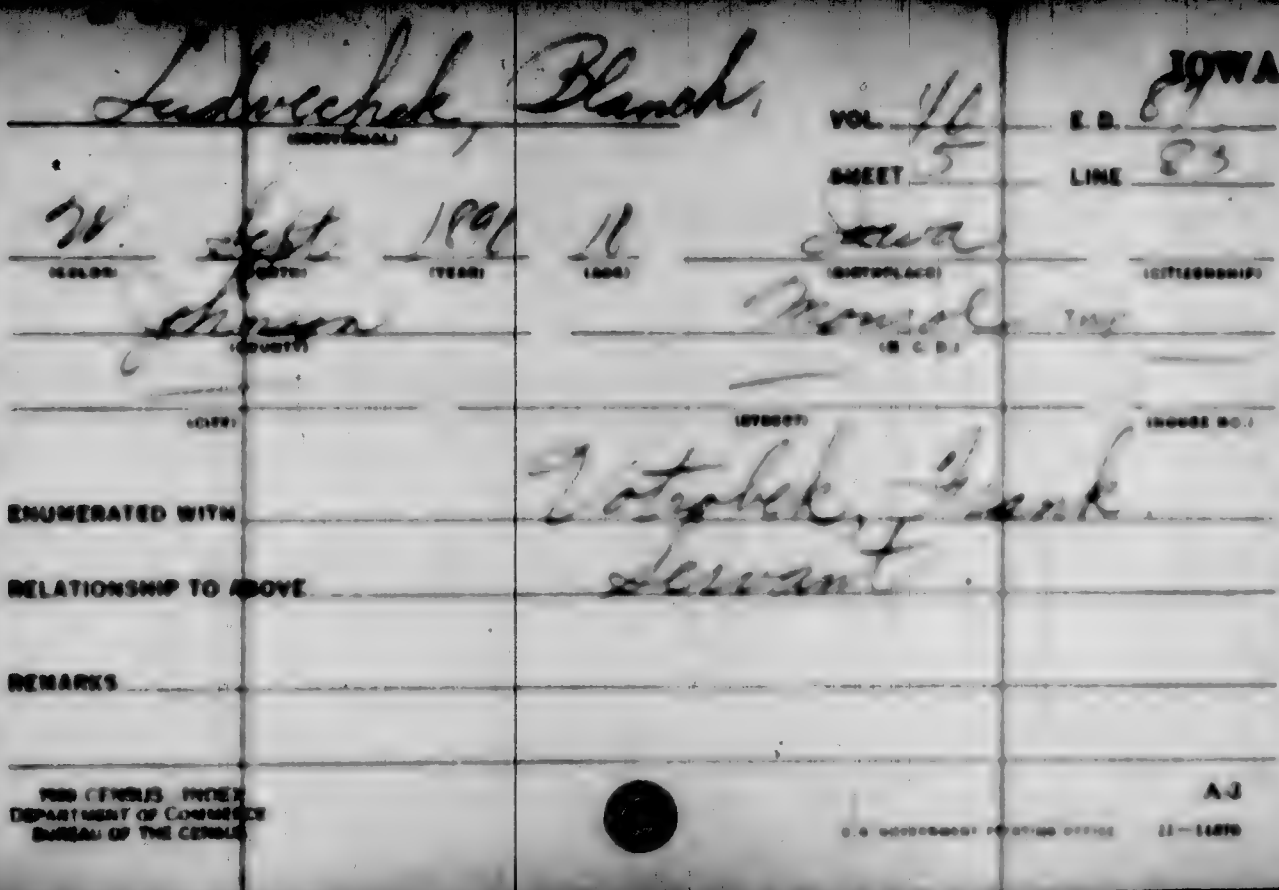 IOWA
Ludvechek, Blanch,
(INDIVIDUAL)
VOL. 46 E. D. 87
SHEET 5 LINE 83
W. Sept. 18
(COLOR) (MONTH) (YEAR) (AGE)
Iowa
(BIRTHPLACE) (CITIZENSHIP)
Johnson
(COUNTY)
Monroe
(M. C. D.)
(CITY) (STREET) (HOUSE NO.)
ENUMERATED WITH Votrobek, Frank
RELATIONSHIP TO ABOVE Servant
REMARKS
CENSUS INDEX
DEPARTMENT OF COMMERCE
BUREAU OF THE CENSUS
U.S. GOVERNMENT PRINTING OFFICE